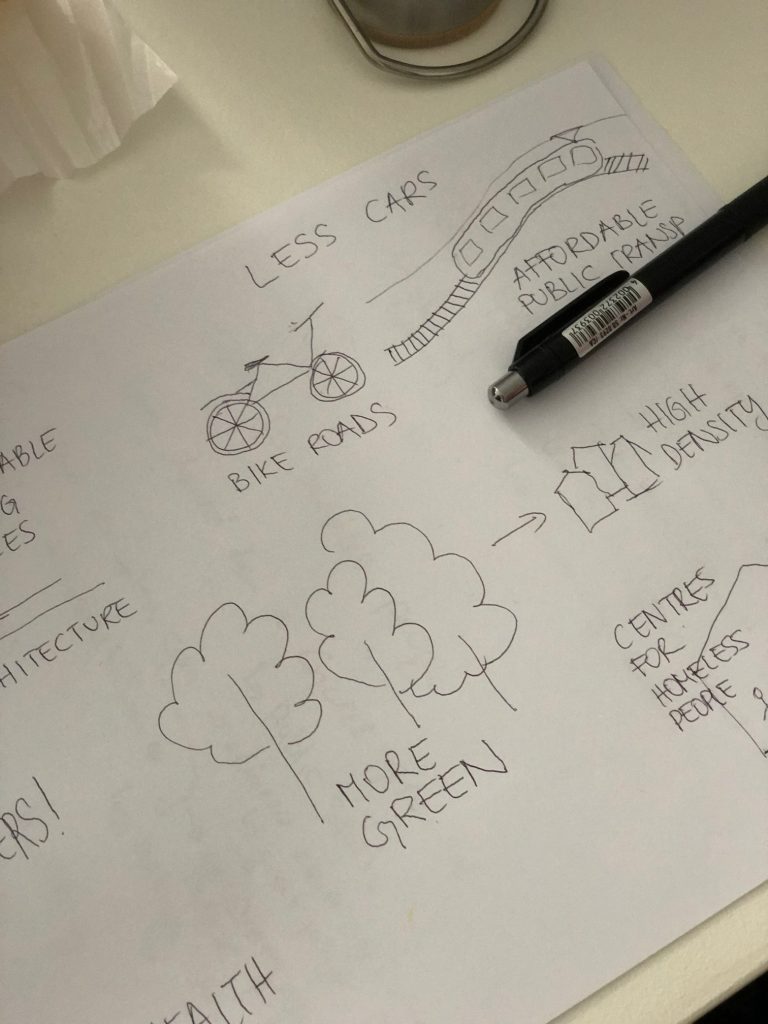 LESS CARS
AFFORDABLE
PUBLIC TRANSP
BIKE ROADS
HIGH
DENSITY
ABLE
G
ES
HITECTURE
CENTRES
FOR
HOMELESS
PEOPLE
MORE
GREEN
ERS!
EALTH